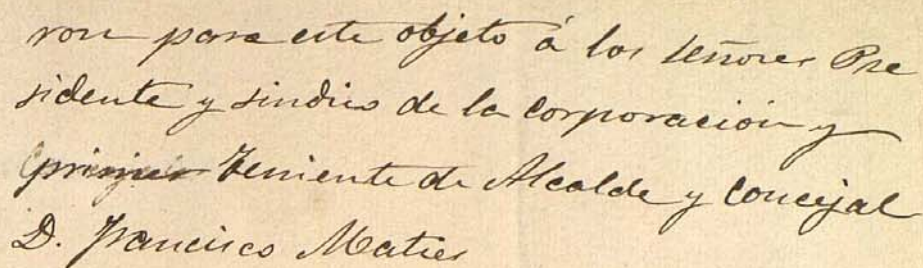 ron para este objeto á los señores Pre
sidente y sindico de la corporación y
primer Teniente de Alcalde y concejal
D. Francisco Maties